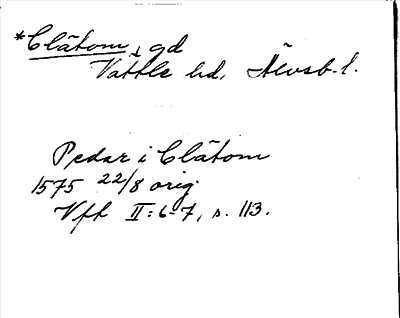 *Clätom, gd
Vättle hd, Älvsb. l.
Pedar i Clätom
1575 22/8 orig
Vfh II: 6-7, s. 113.